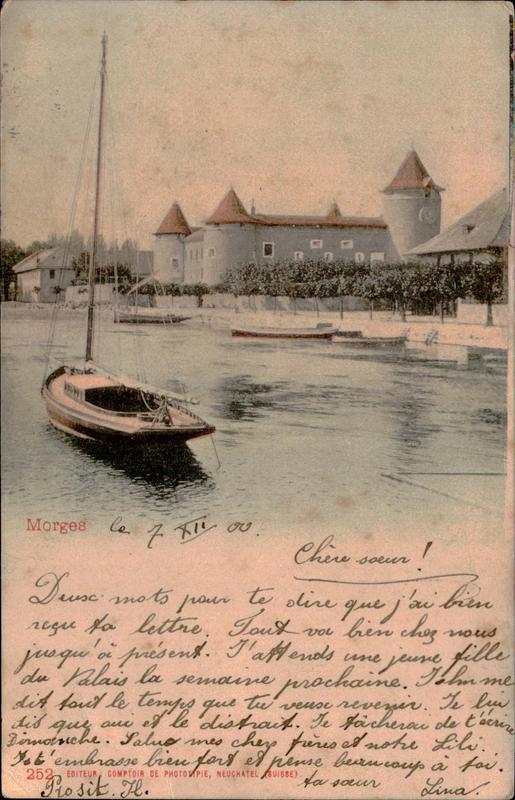 Morges le 7 XII 00.
Chère sœur!
Deux mots pour te dire que j'ai bien
reçu ta lettre. Tout va bien chez nous
jusqu'à présent. J'attends une jeune fille
du Valais la semaine prochaine. John me
dit tout le temps que tu veux revenir. Je lui
dis que oui et le distrait. Je tâcherai de t'écrire
Dimanche. Salue mes chers frères et notre Lili.
Je t'embrasse bien fort et pense beaucoup à toi.
252 EDITEUR: COMPTOIR DE PHOTOTYPIE, NEUCHATEL (SUISSE) ta sœur
Prosit. H. Lina.